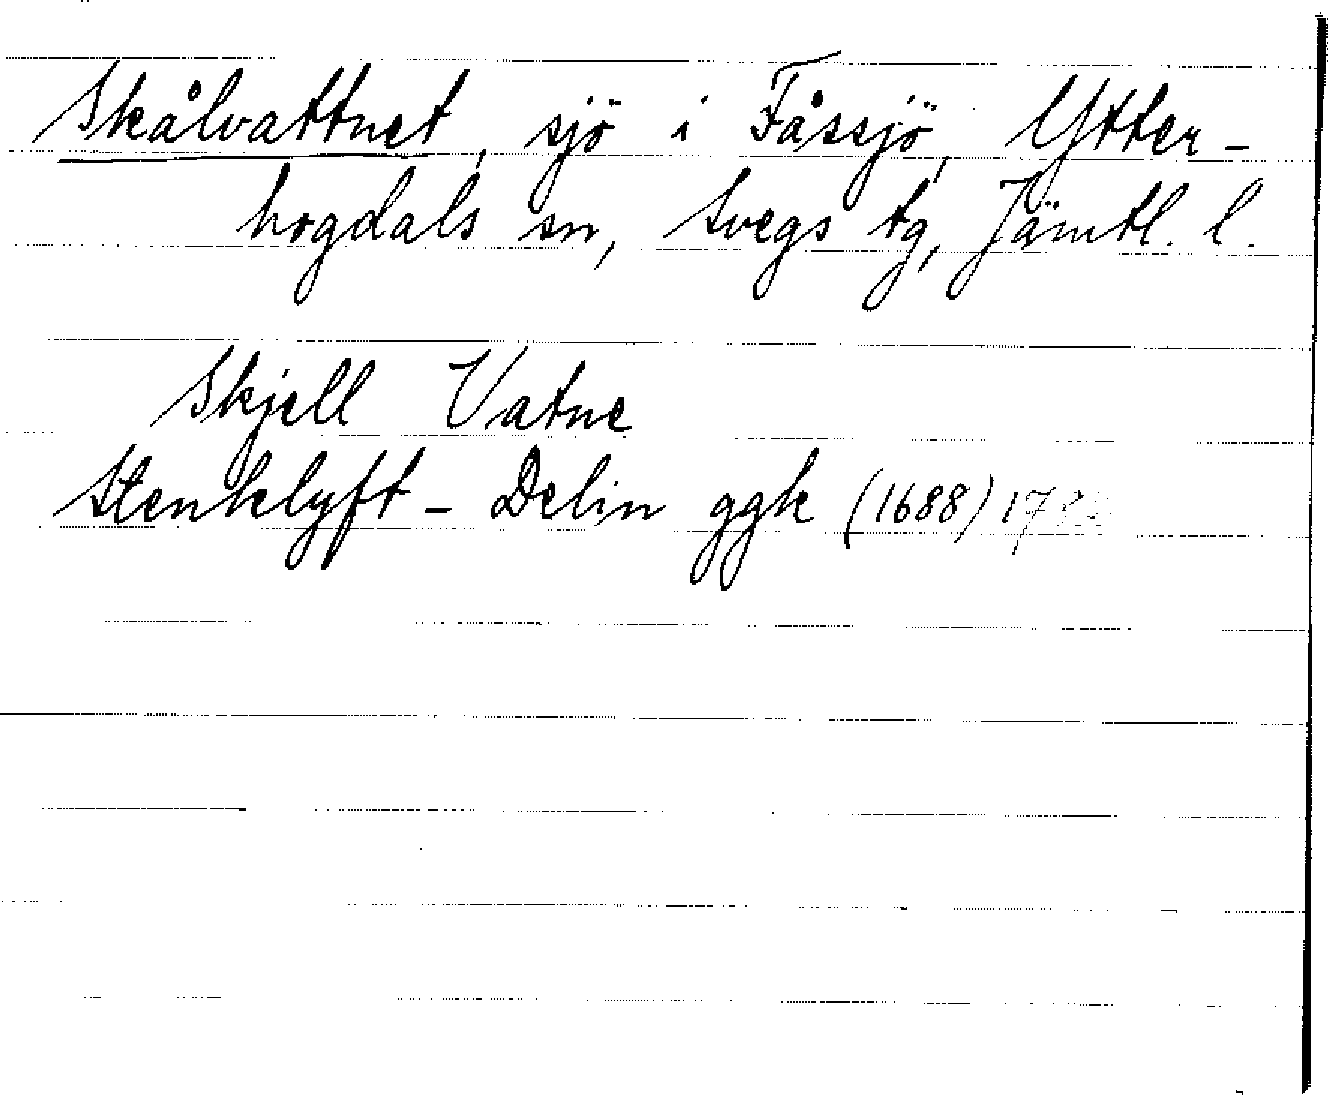 Skålvattnet, sjö i Fåssjö, Ytter-
hogdals sn, Svegs tg, Jämtl. l.
Skjell Vatne
Stenklyft - Delin ggk (1688)